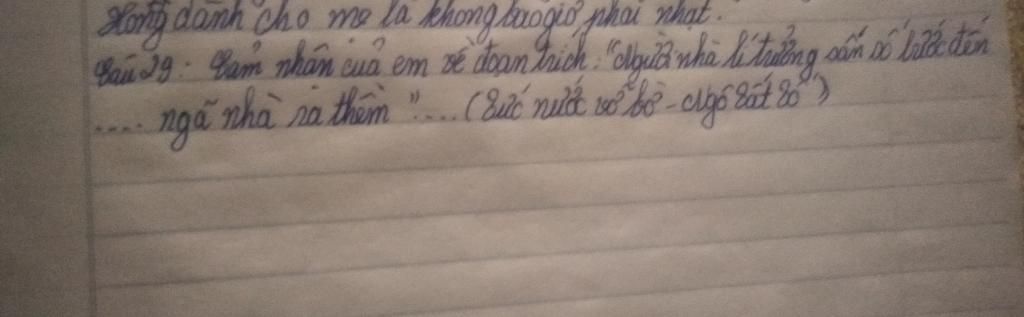 Hồng dành cho mẹ là không bao giờ phai nhạt.
Câu 29: Cảm nhận của em về đoạn trích: "Người nhà lí trưởng sấn sổ bước đến
.... ngã nhào ra thềm".... (Tức nước vỡ bờ - Ngô Tất Tố)